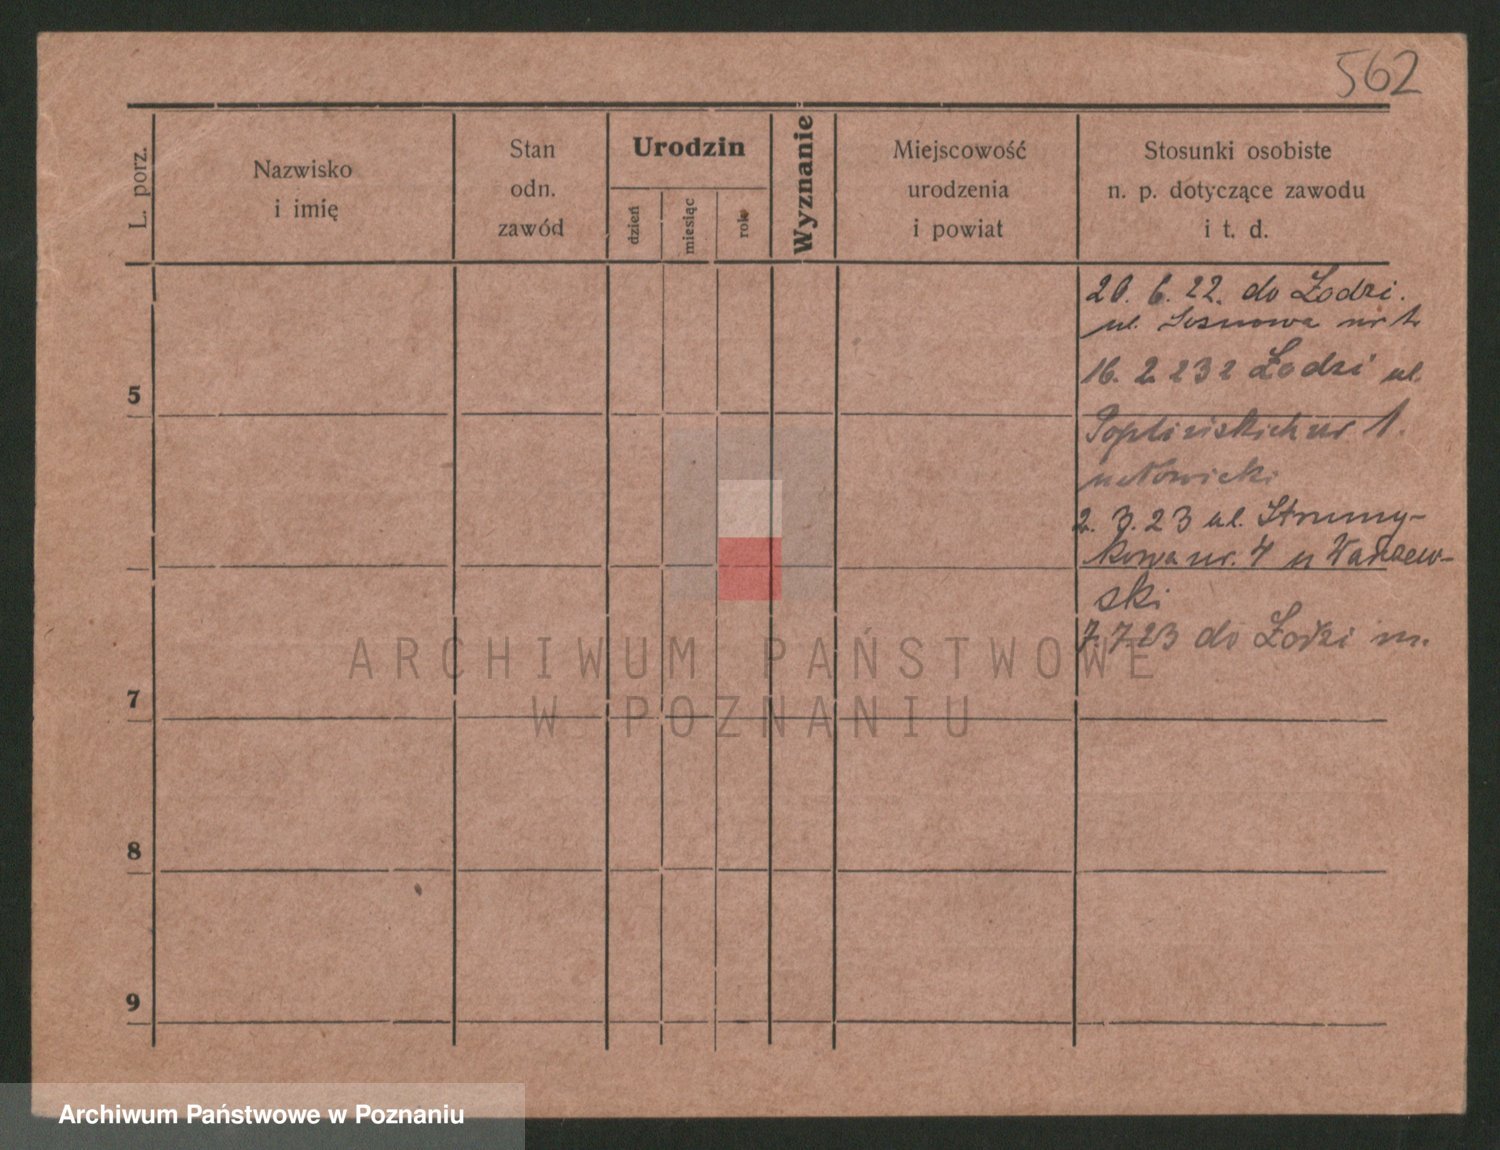 562
L. porz.
Nazwisko
i imię
Stan
odn.
zawód
Urodzin
dzień
miesiąc
rok
Wyznanie
Miejscowość
urodzenia
i powiat
Stosunki osobiste
n. p. dotyczące zawodu
i t. d.
20. 6. 22. do Łodzi.
ul. Sosnowa nr 1
5
16. 2 23 z Łodzi ul.
Poplińskich nr 1.
u Nowicki
2. 3. 23 ul. Strumy-
kowa nr. 4 u Warzew-
ski
7. 7. 23 do Łodzi m.
7
8
9
ARCHIWUM PAŃSTWOWE
W POZNANIU
Archiwum Państwowe w Poznaniu